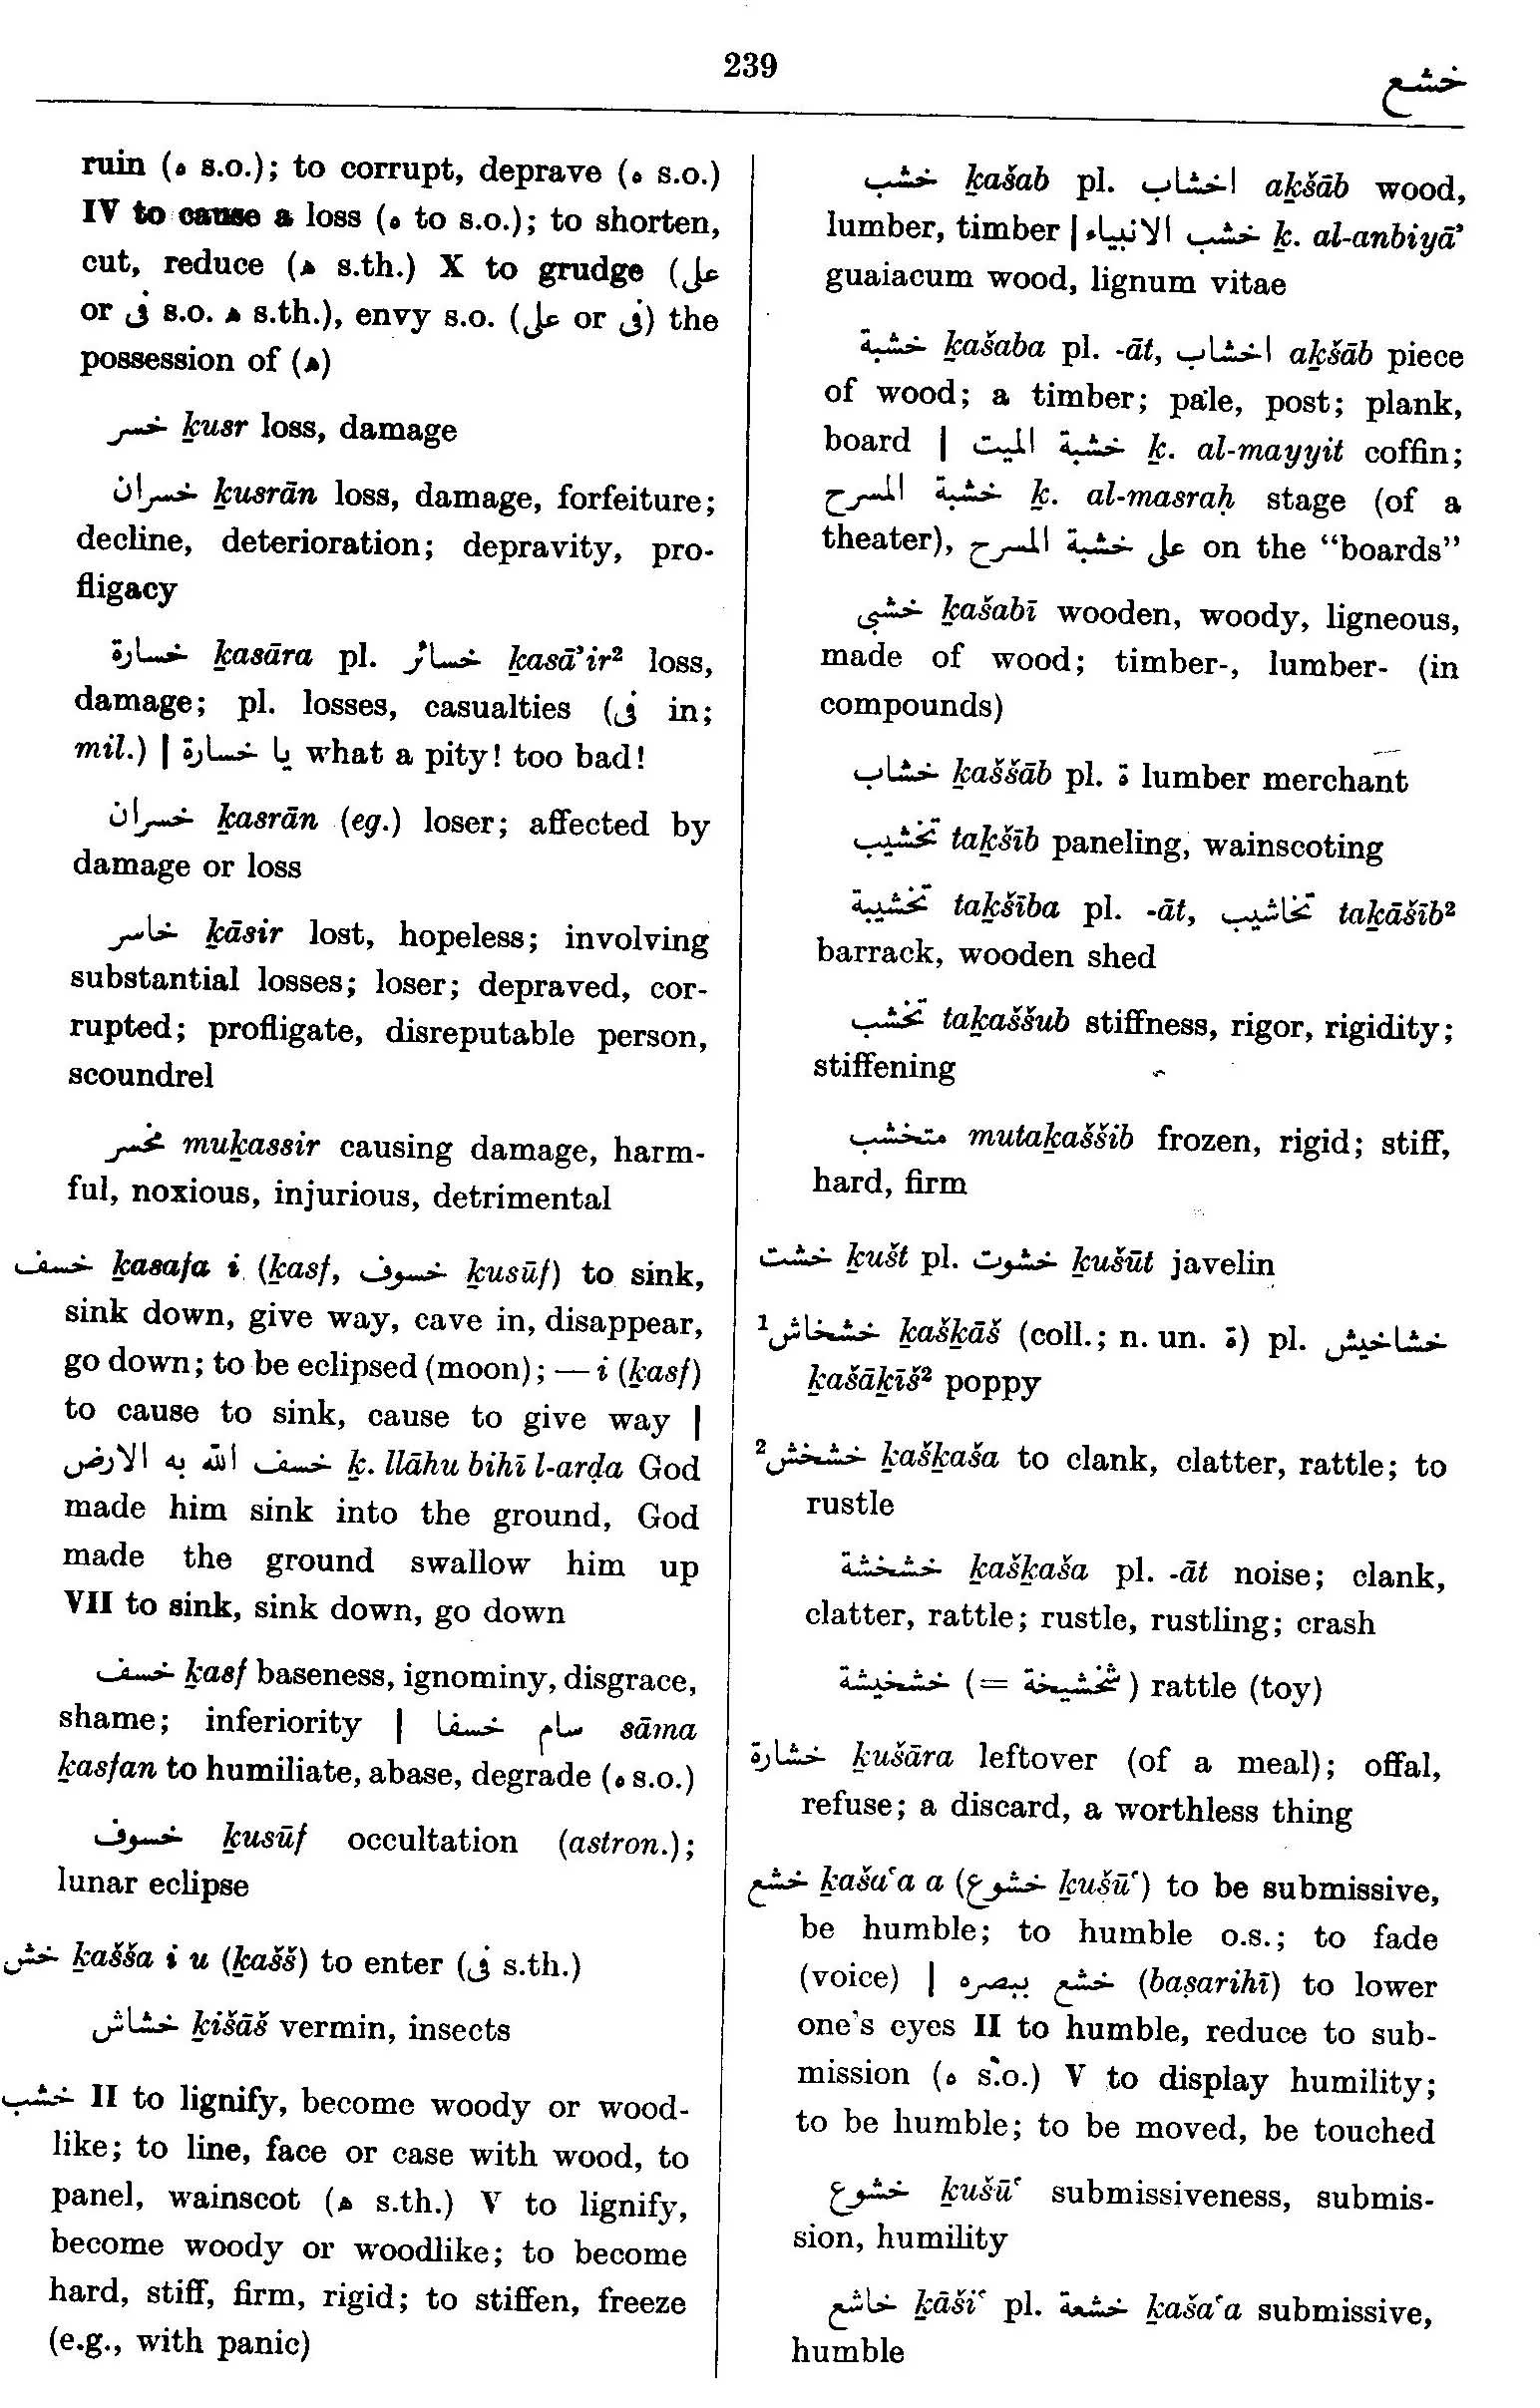 239
خشع
ruin (ه s.o.); to corrupt, deprave (ه s.o.)
IV to cause a loss (ه to s.o.); to shorten,
cut, reduce (ھ s.th.) X to grudge (على
or فى s.o. ھ s.th.), envy s.o. (على or فى) the
possession of (ھ)
خسر ḵusr loss, damage
خسران ḵusrān loss, damage, forfeiture;
decline, deterioration; depravity, pro-
fligacy
خسارة ḵasāra pl. خسائر ḵasā’ir² loss,
damage; pl. losses, casualties (فى in;
mil.) | يا خسارة what a pity! too bad!
خسران ḵasrān (eg.) loser; affected by
damage or loss
خاسر ḵāsir lost, hopeless; involving
substantial losses; loser; depraved, cor-
rupted; profligate, disreputable person,
scoundrel
مخسر muḵassir causing damage, harm-
ful, noxious, injurious, detrimental
خسف ḵasafa i (ḵasf, خسوف ḵusūf) to sink,
sink down, give way, cave in, disappear,
go down; to be eclipsed (moon); — i (ḵasf)
to cause to sink, cause to give way |
خسف الله به الارض ḵ. llāhu bihī l-arḍa God
made him sink into the ground, God
made the ground swallow him up
VII to sink, sink down, go down
خسف ḵasf baseness, ignominy, disgrace,
shame; inferiority | سام خسفا sāma
ḵasfan to humiliate, abase, degrade (ه s.o.)
خسوف ḵusūf occultation (astron.);
lunar eclipse
خش ḵašša i u (ḵašš) to enter (فى s.th.)
خشاش ḵišāš vermin, insects
خشب II to lignify, become woody or wood-
like; to line, face or case with wood, to
panel, wainscot (ھ s.th.) V to lignify,
become woody or woodlike; to become
hard, stiff, firm, rigid; to stiffen, freeze
(e.g., with panic)
خشب ḵašab pl. اخشاب aḵšāb wood,
lumber, timber | خشب الانبياء ḵ. al-anbiyā’
guaiacum wood, lignum vitae
خشبة ḵašaba pl. -āt, اخشاب aḵšāb piece
of wood; a timber; pale, post; plank,
board | خشبة الميت ḵ. al-mayyit coffin;
خشبة المسرح ḵ. al-masraḥ stage (of a
theater), على خشبة المسرح on the “boards”
خشبى ḵašabī wooden, woody, ligneous,
made of wood; timber-, lumber- (in
compounds)
خشاب ḵaššāb pl. ة lumber merchant
تخشيب taḵšīb paneling, wainscoting
تخشيبة taḵšība pl. -āt, تخاشيب taḵāšīb²
barrack, wooden shed
تخشب taḵaššub stiffness, rigor, rigidity;
stiffening
متخشب mutaḵaššib frozen, rigid; stiff,
hard, firm
خشت ḵušt pl. خشوت ḵušūt javelin
¹خشخاش ḵašḵāš (coll.; n. un. ة) pl. خشاخيش
ḵašāḵīš² poppy
²خشخش ḵašḵaša to clank, clatter, rattle; to
rustle
خشخشة ḵašḵaša pl. -āt noise; clank,
clatter, rattle; rustle, rustling; crash
خشخيشة (= شخشيخة) rattle (toy)
خشارة ḵušāra leftover (of a meal); offal,
refuse; a discard, a worthless thing
خشع ḵaša‘a a (خشوع ḵušū‘) to be submissive,
be humble; to humble o.s.; to fade
(voice) | خشع ببصره (baṣarihī) to lower
one’s eyes II to humble, reduce to sub-
mission (ه s.o.) V to display humility;
to be humble; to be moved, be touched
خشوع ḵušū‘ submissiveness, submis-
sion, humility
خاشع ḵāši‘ pl. خشعة ḵaša‘a submissive,
humble